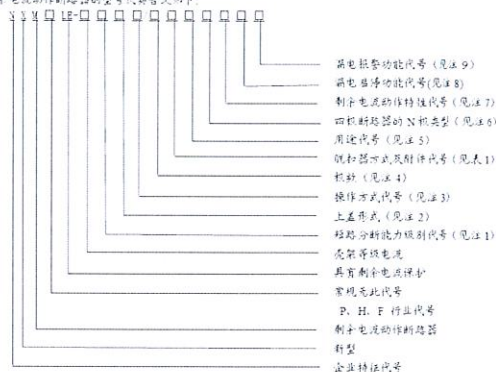 电流动作断路器的型号代号含义如下:
N X M □ LE-□ □ □ □ □ □ □ □ □ □ □
漏电报警功能代号（见注 9）
漏电自动功能代号(见注 8)
剩余电流动作特性代号（见注 7）
四极断路器的 N 极类型（见注 6）
用途代号（见注 5）
脱扣器方式及附件代号（见表 1）
极数（见注 4）
操作方式代号（见注 3）
上盖形式（见注 2）
短路分断能力级别代号（见注 1）
壳架等级电流
具有剩余电流保护
常规无此代号
P、H、F 行业代号
剩余电流动作断路器
新型
企业特征代号